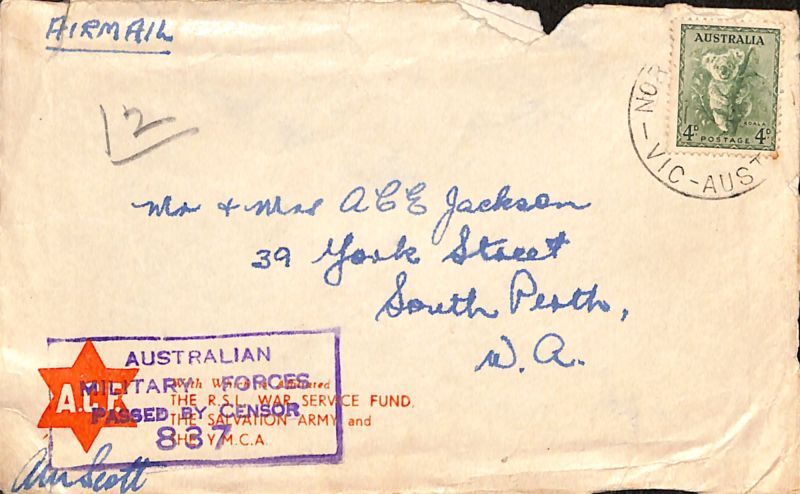 AIRMAIL
12
AUSTRALIA
KOALA
4D POSTAGE 4D
VIC-AUST
Mr & Mrs A C E Jackson
39 York Street
South Perth,
W. A.
AUSTRALIAN
MILITARY FORCES
PASSED BY CENSOR
837
A.C.F.
With Which is Affiliated
THE R.S.L. WAR SERVICE FUND,
THE SALVATION ARMY and
THE Y.M.C.A.
Scott